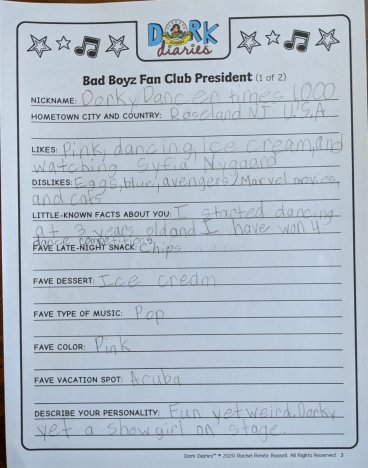 DORK
diaries
Bad Boyz Fan Club President (1 of 2)
NICKNAME: Dorky Dancer times 1,000
HOMETOWN CITY AND COUNTRY: Roseland NJ U.S.A
LIKES: Pink, dancing, ice cream, and
watching Syfia Nygaard
DISLIKES: Eggs, blue, avengers/Marvel movies,
and cats
LITTLE-KNOWN FACTS ABOUT YOU: I started dancing
at 3 years old and I have won 4
dance competitions
FAVE LATE-NIGHT SNACK: Chips
FAVE DESSERT: Ice cream
FAVE TYPE OF MUSIC: Pop
FAVE COLOR: Pink
FAVE VACATION SPOT: Aruba
DESCRIBE YOUR PERSONALITY: Fun yet weird. Dorky
yet a showgirl on stage.
Dork Diaries™ © 2020 Rachel Renée Russell. All Rights Reserved. 3